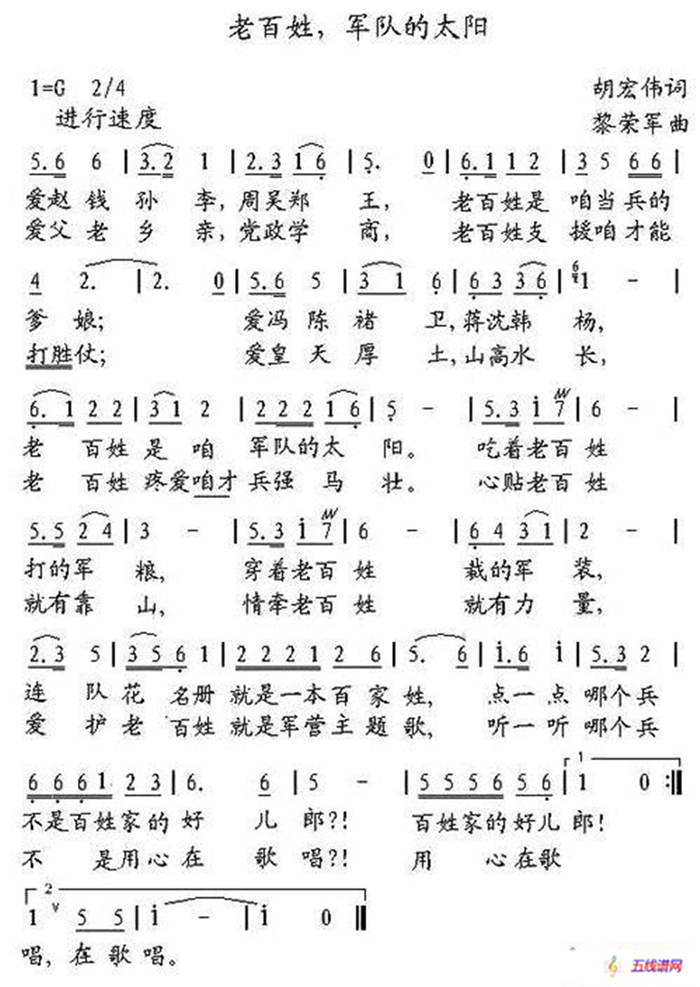 老百姓，军队的太阳
1=G 2/4 胡宏伟词
进行速度 黎荣军曲
5.6 6 | 3.2 1 | 2.3 1 6 | 5. 0 | 6.1 1 2 | 3 5 6 6 |
爱赵钱孙李，周吴郑王，老百姓是咱当兵的
爱父老乡亲，党政学商，老百姓支援咱才能
4 2. | 2. 0 | 5.6 5 | 3 1 6 | 6 3 3 6 | 1 - |
爹娘；爱冯陈褚卫，蒋沈韩杨，
打胜仗；爱皇天厚土，山高水长，
6.1 2 2 | 3 1 2 | 2 2 2 1 6 | 5 - | 5.3 i 7 | 6 - |
老百姓是咱军队的太阳。吃着老百姓
老百姓疼爱咱才兵强马壮。心贴老百姓
5.5 2 4 | 3 - | 5.3 i 7 | 6 - | 6 4 3 1 | 2 - |
打的军粮，穿着老百姓栽的军装，
就有靠山，情牵老百姓就有力量，
2.3 5 | 3 5 6 1 | 2 2 2 1 2 6 | 5. 6 | i.6 i | 5.3 2 |
连队花名册就是一本百家姓，点一点哪个兵
爱护老百姓就是军营主题歌，听一听哪个兵
1
6 6 6 1 2 3 | 6. 6 | 5 - | 5 5 5 6 5 6 | 1 0 :||
不是百姓家的好儿郎?！百姓家的好儿郎！
不是用心在歌唱?！用心在歌
2
1 ∨ 5 5 | i - | i 0 ||
唱，在歌唱。
五线谱网